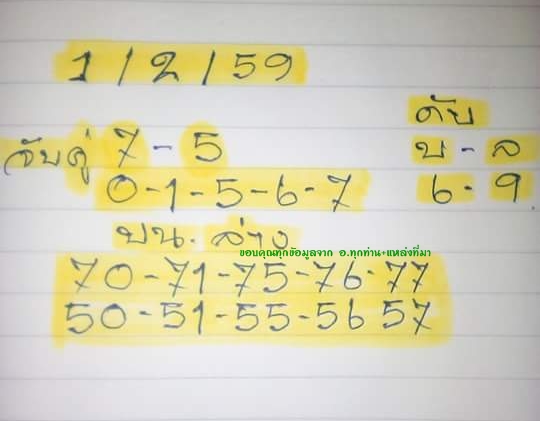 1/2/59
ดับ
จับคู่ 7-5
บ-ล
0-1-5-6-7
6-9
บน. ล่าง
ขอบคุณทุกข้อมูลจาก อ.ทุกท่าน+แหล่งที่มา
70-71-75-76-77
50-51-55-56 57